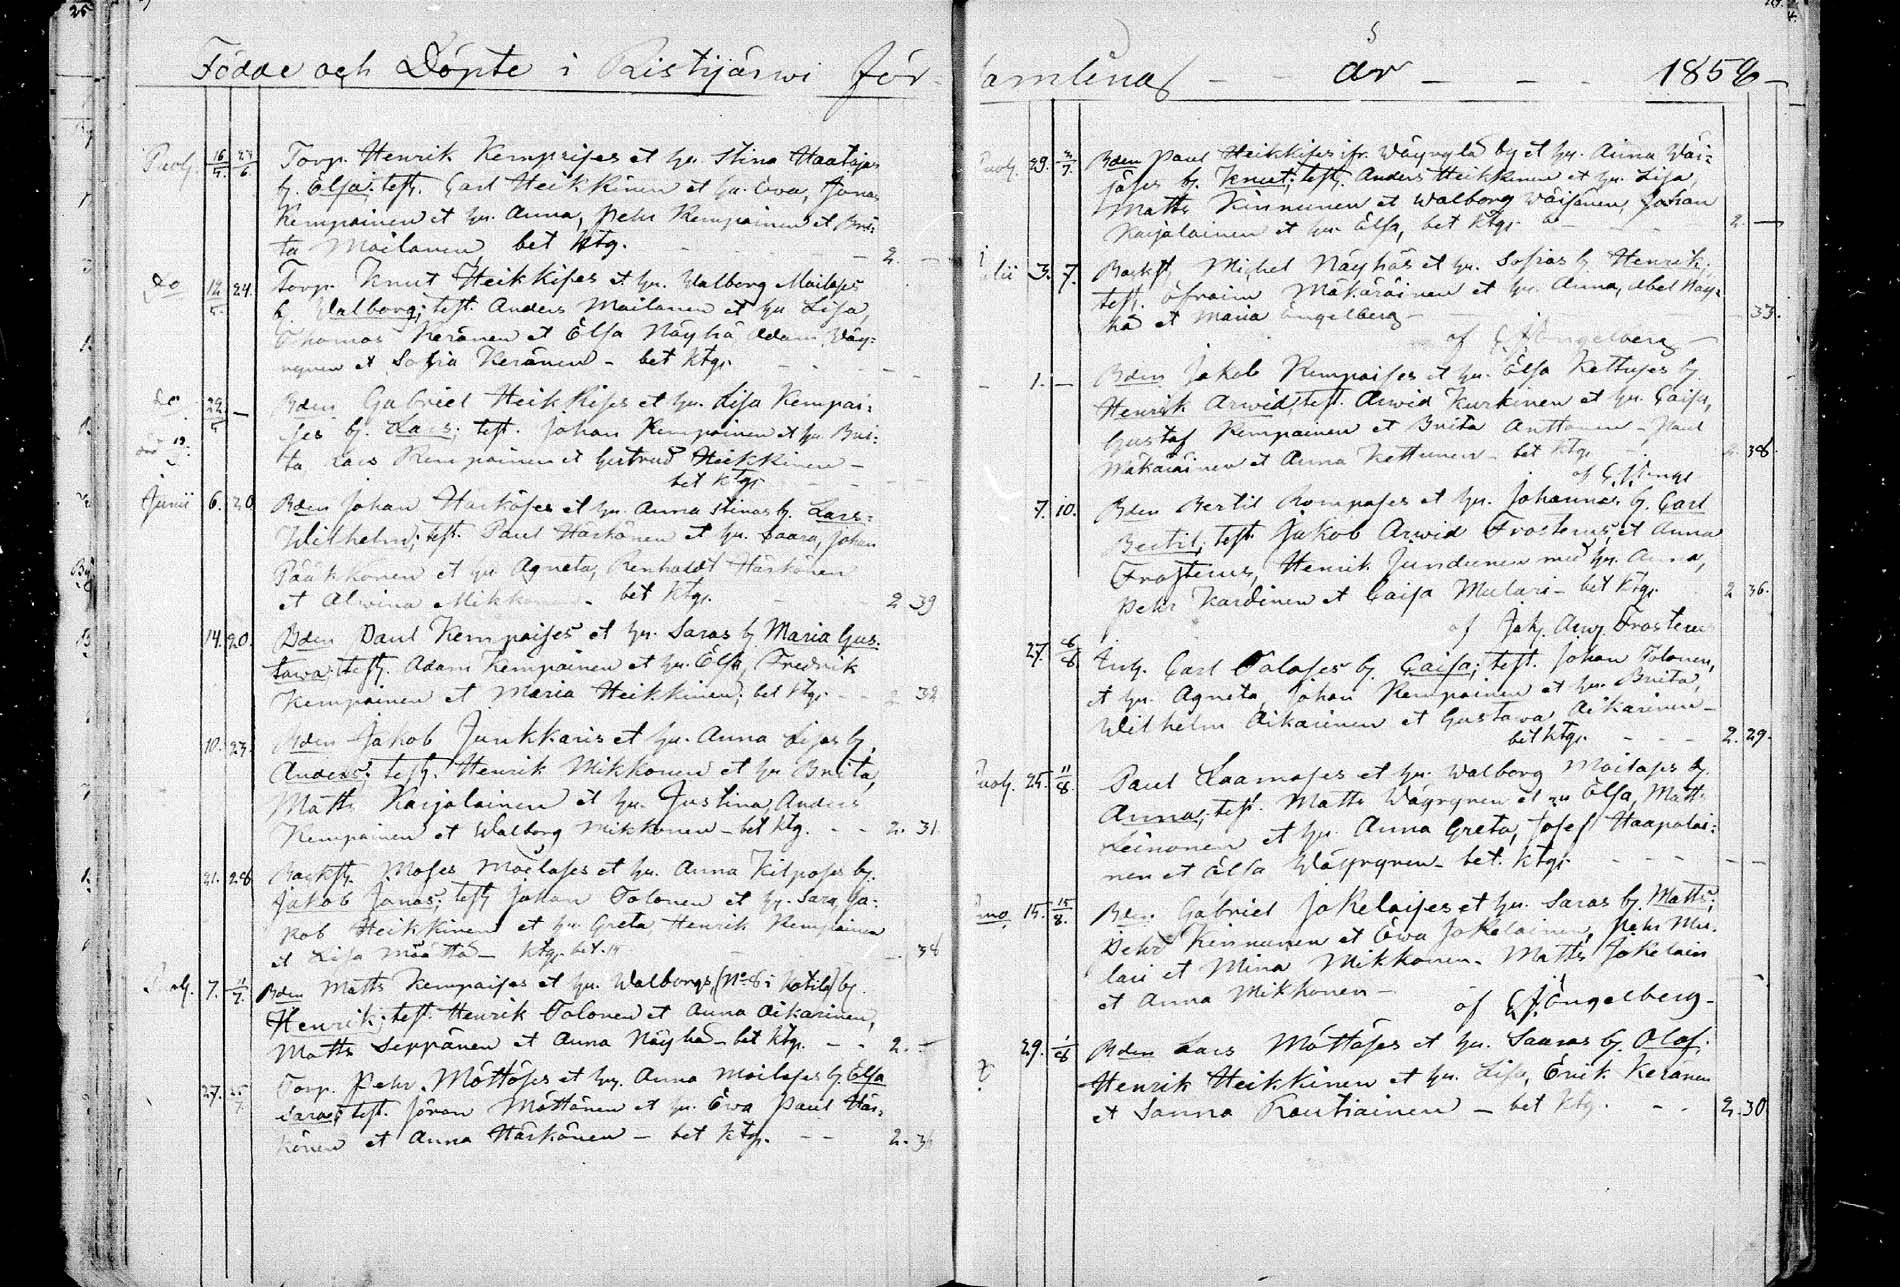 Födde och Döpte i Ristijärwi För-
samling år 1856
16/5 24/6 Torp. Henrik Kempaises et hu. Stina Haatajas
b. Elsa; test. Carl Heikkinen et hu. Ewa, Jonas
Kempainen et hu. Anna, Pehr Kempainen et Bri-
ta Moilanen bet ktg. 2. —
Do 12/5 24. Torp. Knut Heikkises et hu. Walborg Moilases
b. Walborg; test. Anders Moilanen et hu Lisa,
Thomas Keränen et Elsa Näyhä Adam Wäy-
rynen et Sofia Keränen - bet ktg.
Do 22/5 — Bden Gabriel Heikkises et hu. Lisa Kempai-
ses b. Lars; test. Johan Kempainen et hu. Bri-
ta Lars Kempainen et Gertrud Heikkinen —
bet ktg.
Junii 6. 20 Bden Johan Härköses et hu. Anna Stinas b. Lars-
Wilhelm; test. Paul Härkönen et hu. Saara, Johan
Pääkkönen et hu Agneta, Renholdt Härkönen
et Alwina Mikkonen - bet ktg. 2 39
14. 20. Bden Paul Kempaises et hu. Saras b. Maria Gus-
tawa; test. Adam Kempainen et hu. Elsa, Fredrik
Kempainen et Maria Heikkinen; bet ktg. 2 32
10. 23. Bden Jakob Junkkaris et hu. Anna Lisas b.
Anders; test. Henrik Mikkonen et hu Brita,
Matts Karjalainen et hu. Justina, Anders
Kempainen et Walborg Mikkonen - bet ktg. 2. 31.
21. 28 Backst. Moses Moilases et hu. Anna Kilposes b.
Jakob Jonas; test Johan Tolonen et hu. Sara, Ja-
kob Heikkinen et hu. Greta, Henrik Kempainen
et Lisa Määttä — ktg. bet. 34
7. 1/7 Bden Matts Kempaises et hu. Walborgs, (No 8 i Katila) b.
Henrik; test. Henrik Tolonen et Anna Aikarinen,
Matts Seppänen et Anna Näyhä - bet ktg. 2. —
27. 25/7 Torp. Pehr Möttöses et hu. Anna Moilases b. Elsa
Sara; test. Jöran Möttönen et hu. Ewa Paul Här-
könen et Anna Härkönen — bet ktg. 2.
29. 3/7. Bden Paul Heikkises ifr. Wäyrylä by et hu. Anna Wäi-
säses b. Knut; test. Anders Heikkinen et hu. Lisa,
Matts Kinnunen et Walborg Wäisänen, Johan
Karjalainen et hu. Elsa, bet ktg. 2. —
3. 7. Backst. Michel Näyhäs et hu. Sofias b. Henrik;
test. Efraim Mäkäräinen et hu. Anna, Abel Näy-
hä et Maria Engelberg — 33.
af Engelberg —
1. — Bden Jakob Kempaises et hu. Elsa Kettuses b.
Henrik Arwid; test. Arwid Kurkinen et hu. Caisa,
Gustaf Kempainen et Brita Anttonen - Paul
Mäkäräinen et Anna Kettunen - bet ktg. 38.
7. 10. Bden Bertil Rompases et hu. Johannas b. Carl
Bertil; test. Jakob Arwid Frosterus, et Anna
Frosterus, Henrik Jundunen med hu. Anna,
Pehr Kardinen et Caisa Mulari - bet ktg. 2 36.
af Jak. Arw. Frosterus
27. 6/8. Inh. Carl Tolases b. Caisa; test. Johan Tolonen,
et hu. Agneta, Johan Kempainen et hu. Brita,
Wilhelm Aikarinen et Gustawa Aikarinen —
bet ktg. 2. 29.
25. 11/8. Paul Laamases et hu. Walborg Moilases b.
Anna; test. Matts Wäyrynen et hu Elsa, Matts
Leinonen et hu. Anna Greta, Josef Haapalai-
nen et Elsa Wäyrynen - bet. ktg.
15. 15/8. Bden Gabriel Jokelaises et hu. Saras b. Matts;
Pehr Kinnunen et Ewa Jokelainen, Pehr Mu-
lari et Mina Mikkonen. Matts Jokelain
et Anna Mikkonen —
af Engelberg —
29. 1/8 Bden Lars Möttöses et hu. Saaras b. Olof;
Henrik Heikkinen et hu. Lisa, Erik Keränen
et Sanna Rautiainen — bet ktg. 2. 30.